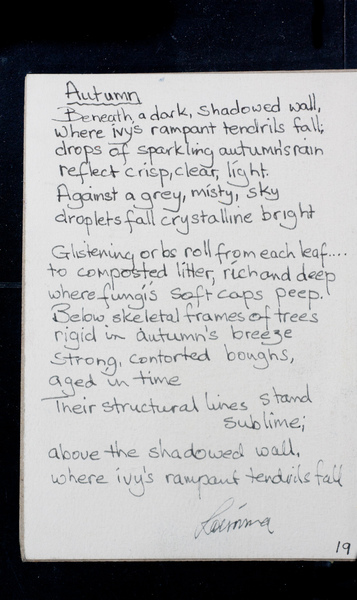 Autumn
Beneath a dark, shadowed wall,
where ivy's rampant tendrils fall;
drops of sparkling autumn's rain
reflect crisp, clear, light.
Against a grey, misty, sky
droplets fall crystalline bright
Glistening orbs roll from each leaf....
to composted litter, rich and deep
where fungi's soft caps peep.
Below skeletal frames of trees
rigid in autumn's breeze
strong, contorted boughs,
aged in time
Their structural lines stand
sublime;
above the shadowed wall,
where ivy's rampant tendrils fall
19